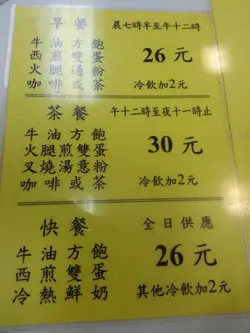 早餐
晨七時半至午十二時
牛油方飽
西煎雙蛋
火腿通粉
咖啡或茶
26元
冷飲加2元
茶餐
午十二時至夜十一時止
牛油方飽
火腿煎雙蛋
叉燒湯意粉
咖啡或茶
30元
冷飲加2元
快餐
全日供應
牛油方飽
西煎雙蛋
冷熱鮮奶
26元
其他冷飲加2元